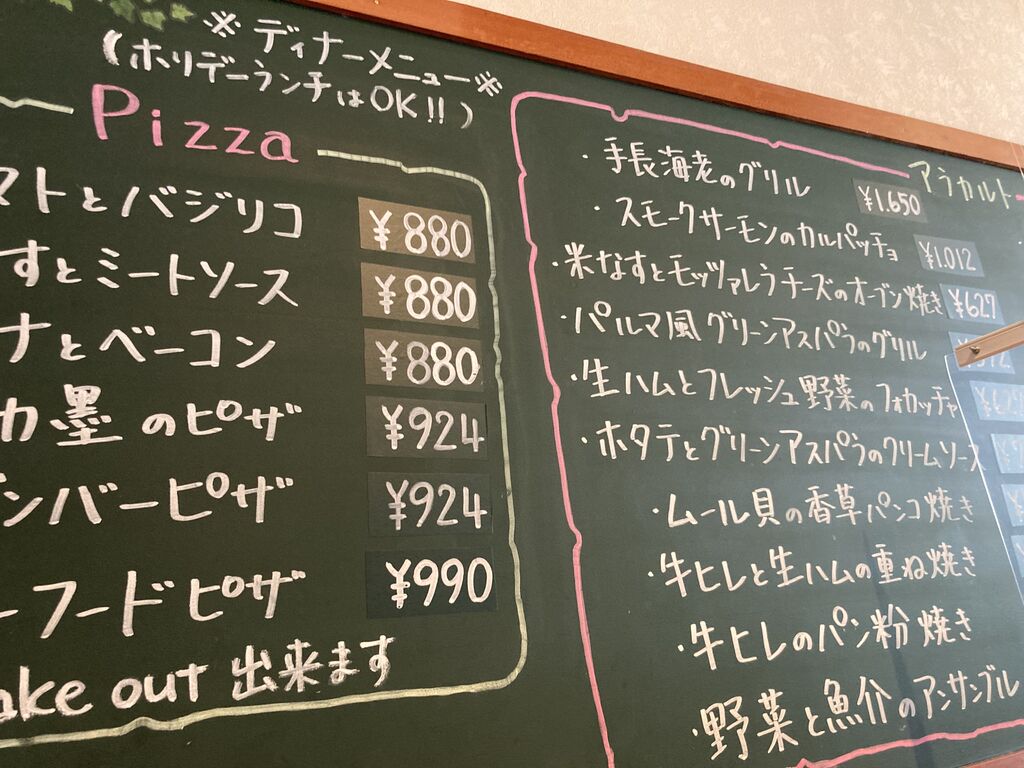 ※ディナーメニュー※
(ホリデーランチはOK!!)
Pizza
マトとバジリコ ¥880
すとミートソース ¥880
ナとベーコン ¥880
カ墨のピザ ¥924
ンバーピザ ¥924
ーフードピザ ¥990
ake out 出来ます
アラカルト
・手長海老のグリル ¥1.650
・スモークサーモンのカルパッチョ ¥1.012
・米なすとモッツァレラチーズのオーブン焼き ¥627
・パルマ風グリーンアスパラのグリル
・生ハムとフレッシュ野菜のフォカッチャ
・ホタテとグリーンアスパラのクリームソース
・ムール貝の香草パンコ焼き
・牛ヒレと生ハムの重ね焼き
・牛ヒレのパン粉焼き
・野菜と魚介のアンサンブル